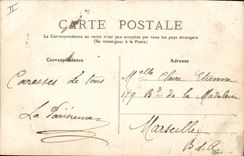 II
CARTE POSTALE
La Correspondance au recto n'est pas acceptée par tous les pays étrangers
(Se renseigner à la Poste)
Correspondance
Adresse
Caresses de tous
La Parisienne
Melle Claire Etienne
179 Bd de la Madeleine
Marseille
B. d. R.